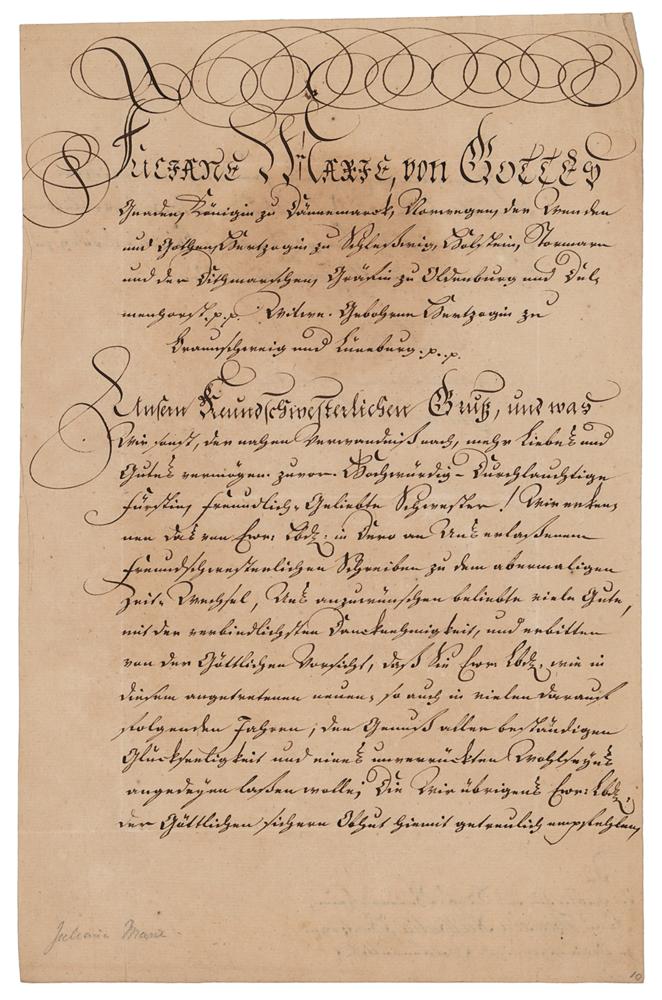 Juliane Marie, von Gottes
Gnaden, Königin zu Dännemarck, Norwegen, der Wenden
und Gothen, Hertzogin zu Schleßwig, Holstein, Stormarn
und der Dithmarschen, Gräfin zu Oldenburg und Del-
menhorst p.p. Witwe. Gebohrne Hertzogin zu
Braunschweig und Lüneburg p. p.
Unsern Freundschwesterlichen Gruß, und was
Wir sonst, der nahen Verwandniß nach, mehr Liebes und
Gutes vermögen zuvor. Hochwürdig-Durchlauchtige
Fürstin, freundlich-Geliebte Schwester! Wir erken-
nen das von Ewr: Lbd: in Dero an Uns erlaßenem
Freundschwesterlichen Schreiben zu dem abermaligen
Zeit-Wechsel, Uns anzuwünschen beliebte viele Gute,
mit der verbindlichsten Dancknehmigkeit, und erbitten
von der Göttlichen Vorsicht, daß Sie Ewr: Lbd: wie in
diesem angetretenen neuen, so auch in vielen darauf
folgenden Jahren, den Genuß aller beständigen
Glückseeligkeit und eines unverrückten Wohlseyns
angedeyen laßen wolle; Die Wir übrigens Ewr: Lbd:
der Göttlichen sichern Obhut hiemit getreulich empfehlen,
Juliane Marie
10